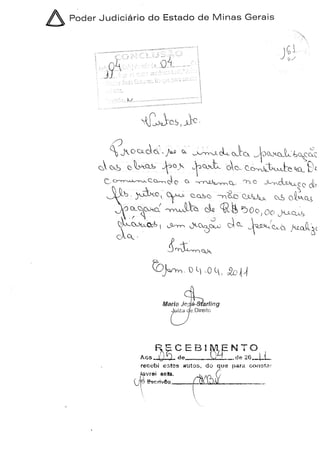 Poder Judiciário do Estado de Minas Gerais
CONCLUSÃO
04 04
11
161
Vistos, etc.
Proceda-se a imediata paralisação
das obras por parte da construtora
comunicando a mesma no endereço de
fls. retro, que caso não cesse as obras
pagará multa de R$ 500,00 reais
diários, em razão da perícia realiza
da.
Intimar
04.04.2011
Maria José Starling
Juíza de Direito
RECEBIMENTO
Aos 05 de 04 de 2011
recebi estes autos, do que para constar
lavrei este.
Escrivão